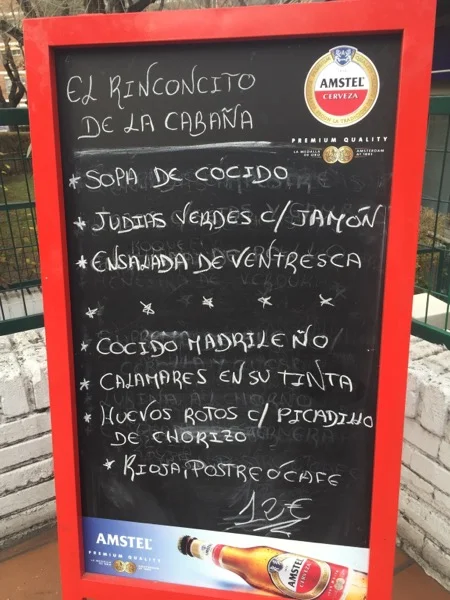 EL RINCONCITO
DE LA CABAÑA
AMSTEL
CERVEZA
PREMIUM QUALITY
LA MEDALLA DE ORO AMSTERDAM DE 1883
* SOPA DE COCIDO
* JUDIAS VERDES C/ JAMÓN
* ENSALADA DE VENTRESCA
* * * * *
* COCIDO MADRILEÑO
* CALAMARES EN SU TINTA
* HUEVOS ROTOS C/ PICADILLO
DE CHORIZO
* RIOJA, POSTRE Ó CAFE
12€
AMSTEL
PREMIUM QUALITY
AMSTEL
CERVEZA